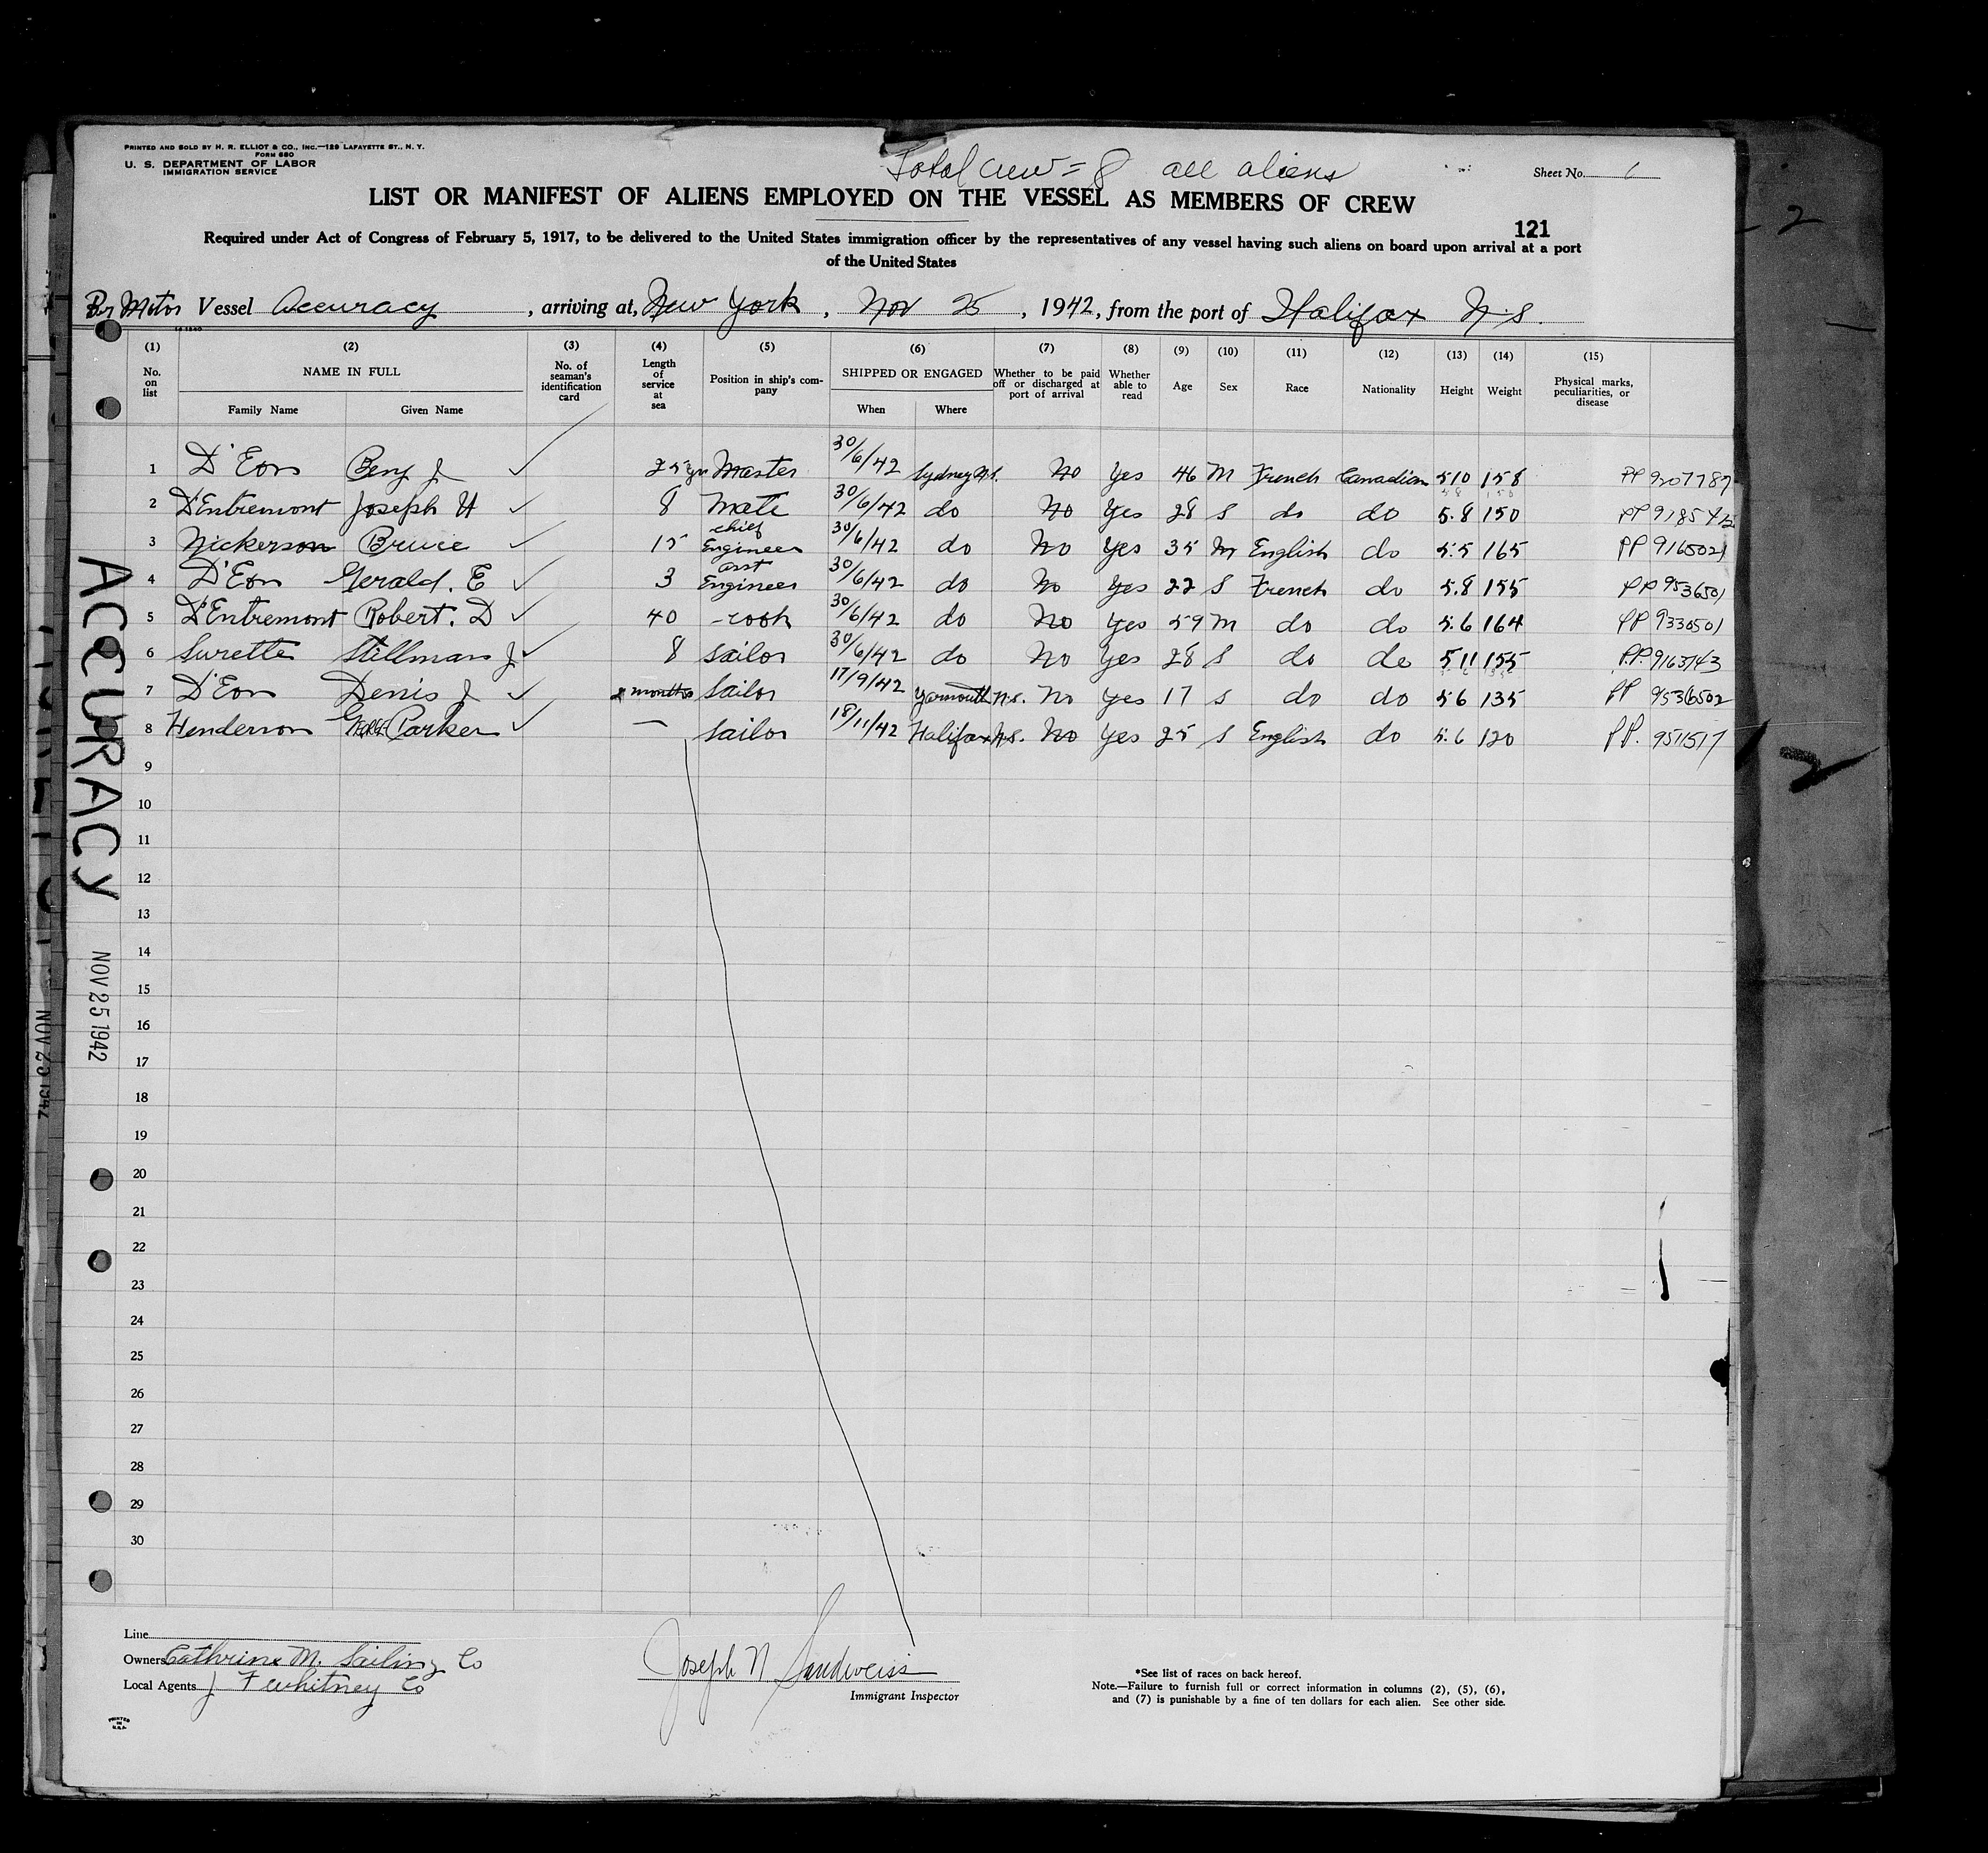 PRINTED AND SOLD BY H. R. ELLIOT & CO., INC.—129 LAFAYETTE ST., N. Y.
FORM 680
U. S. DEPARTMENT OF LABOR
IMMIGRATION SERVICE
Total crew = 8 all aliens
Sheet No. 1
LIST OR MANIFEST OF ALIENS EMPLOYED ON THE VESSEL AS MEMBERS OF CREW
121
Required under Act of Congress of February 5, 1917, to be delivered to the United States immigration officer by the representatives of any vessel having such aliens on board upon arrival at a port
of the United States
Br Motor Vessel Accuracy, arriving at, New York, Nov 25, 1942, from the port of Halifax N.S.
(1) (2) (3) (4) (5) (6) (7) (8) (9) (10) (11) (12) (13) (14) (15)
No. on list NAME IN FULL Family Name Given Name No. of seaman's identification card Length of service at sea Position in ship's company SHIPPED OR ENGAGED When Where Whether to be paid off or discharged at port of arrival Whether able to read Age Sex Race Nationality Height Weight Physical marks, peculiarities, or disease
1 D'Eon Benj J ✓ 25 yrs Master 30/6/42 Sydney N.S. No Yes 46 M French Canadian 5 10 158 PP 9207787
2 D'Entremont Joseph H ✓ 8 Mate 30/6/42 do No Yes 28 S do do 5.8 150 PP
3 Nickerson Bruce ✓ 15 chief Engineer 30/6/42 do No Yes 35 M English do 5.5 165 PP 9165021
4 D'Eon Gerald. E ✓ 3 asst Engineer 30/6/42 do No Yes 22 S French do 5.8 155 PP 9536501
5 D'Entremont Robert. D ✓ 40 cook 30/6/42 do No Yes 59 M do do 5.6 164 PP 9330501
6 Surette Stillman J ✓ 8 sailor 30/6/42 do No Yes 28 S do do 5 11 155 P.P. 9163143
7 D'Eon Denis J ✓ 2 months Sailor 17/9/42 Yarmouth N.S. No Yes 17 S do do 5 6 135 PP 9536502
8 Henderson George Parker ✓ — sailor 18/11/42 Halifax N.S. No Yes 25 S English do 5.6 120 PP. 9511517
9
10
11
12
13
14
15
16
17
18
19
20
21
22
23
24
25
26
27
28
29
30
ACCURACY
NOV 25 1942
Line
Owners Cathrine M. Sailing Co
Local Agents J F Whitney Co
Joseph N Sandweiss
Immigrant Inspector
*See list of races on back hereof.
Note.—Failure to furnish full or correct information in columns (2), (5), (6),
and (7) is punishable by a fine of ten dollars for each alien. See other side.
PRINTED
IN
U.S.A.
2
2